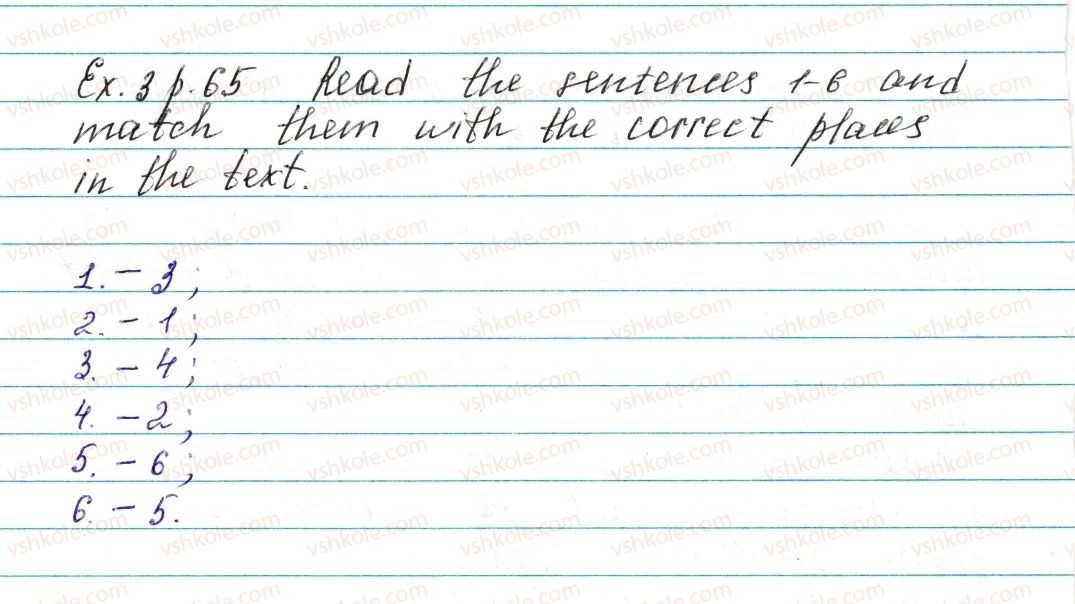 Ex. 3 p. 65 Read the sentences 1-6 and
match them with the correct places
in the text.
1. - 3;
2. - 1;
3. - 4;
4. - 2;
5. - 6;
6. - 5.